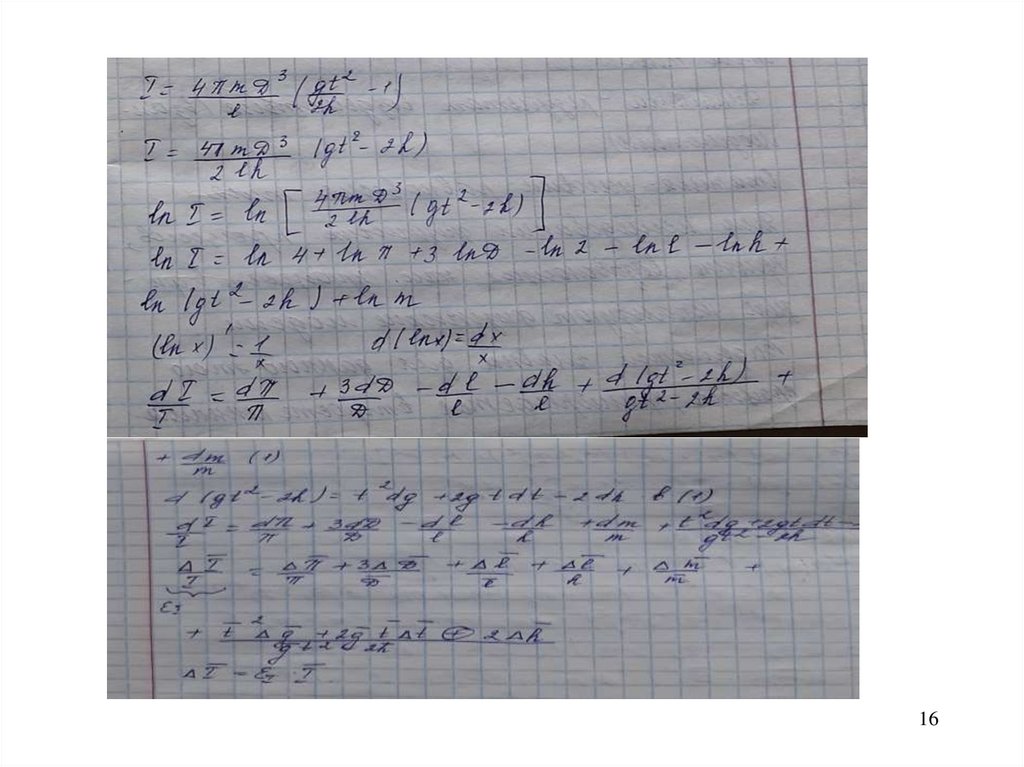 I = 4πmD³/l (gt²/2h - 1)
I = 4πmD³/2lh (gt² - 2h)
ln I = ln [4πmD³/2lh (gt² - 2h)]
ln I = ln 4 + ln π + 3 lnD - ln 2 - ln l - ln h +
ln (gt² - 2h) + ln m
(ln x)' = 1/x d(lnx) = dx/x
dI/I = dπ/π + 3dD/D - dl/l - dh/l + d(gt² - 2h)/gt² - 2h +
+ dm/m (1)
d(gt² - 2h) = t²dg + 2gtdt - 2dh в (1)
dI/I = dπ/π + 3dD/D - dl/l - dh/h + dm/m + t²dg + 2gtdt -/gt² - 2h
ΔI̅/I̅ = Δπ̅/π̅ + 3ΔD̅/D̅ + Δl̅/l̅ + Δl̅/h̅ + Δm̅/m̅ +
+ t̅²Δg̅ + 2g̅t̅Δt̅ ⊕ 2Δh̅/g̅t² 2h̅
ΔI̅ = ε_I · I̅